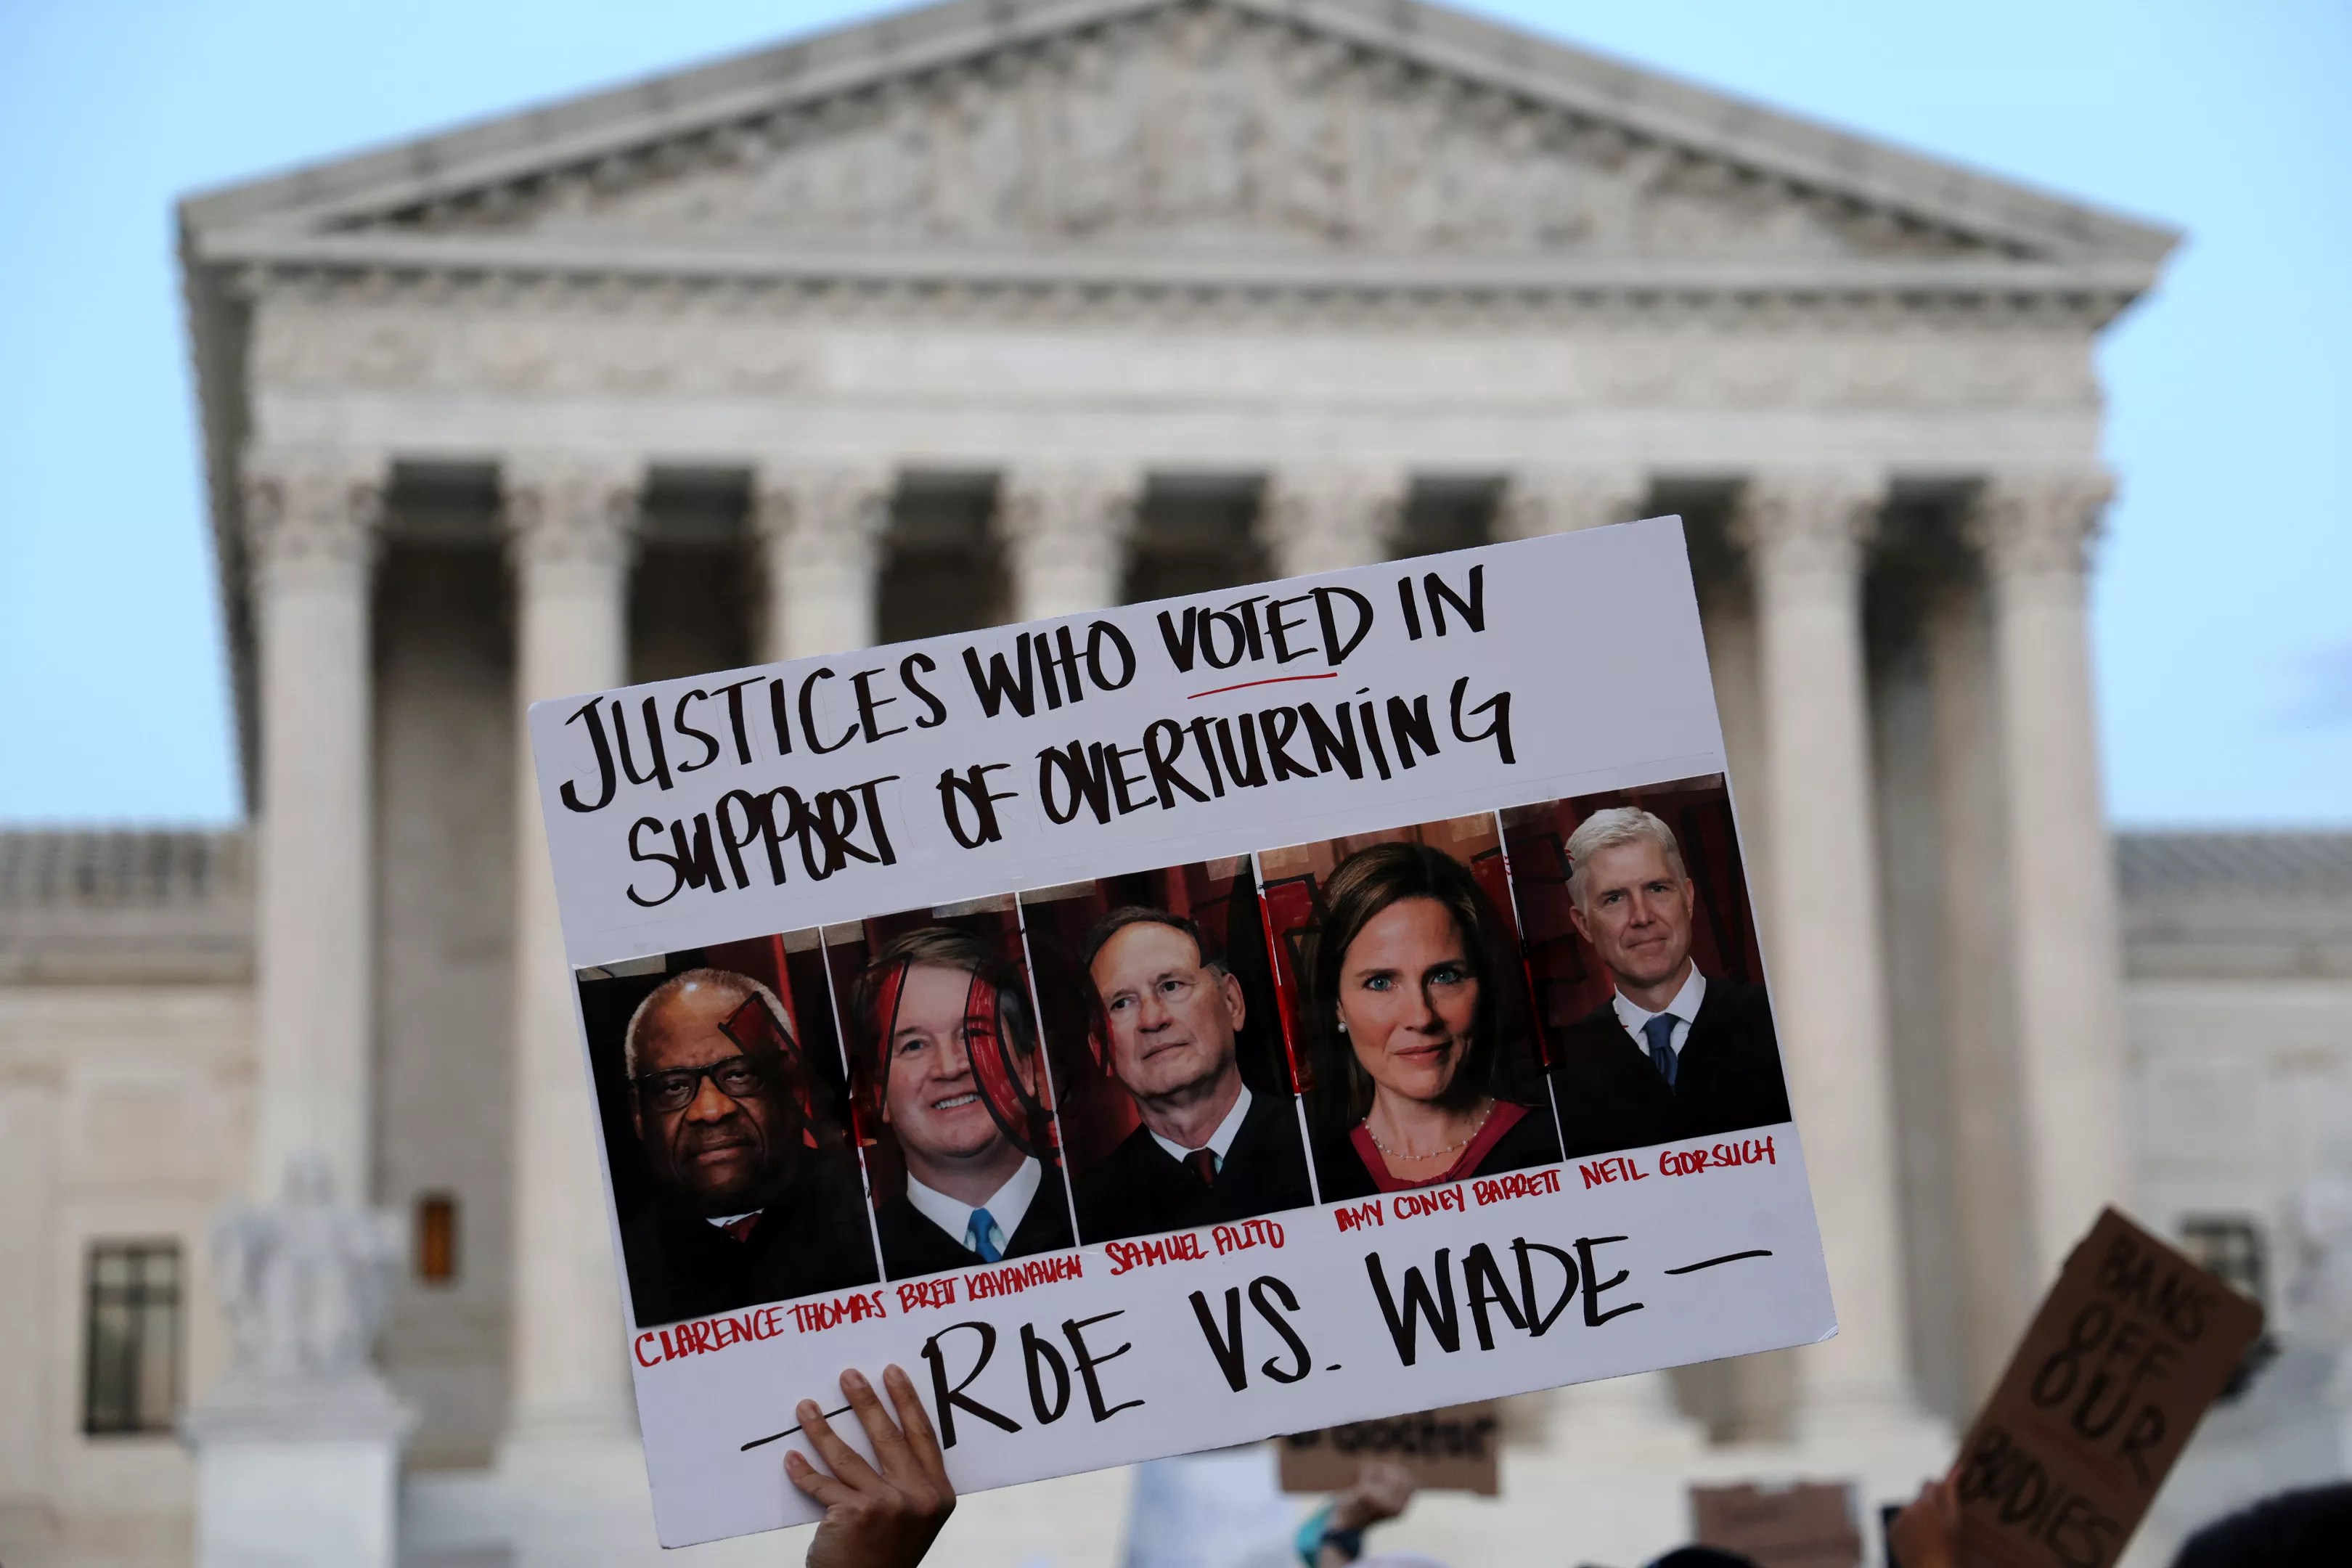 JUSTICES WHO VOTED IN
SUPPORT OF OVERTURNING
CLARENCE THOMAS BRETT KAVANAUGH SAMUEL ALITO AMY CONEY BARRETT NEIL GORSUCH
— ROE VS. WADE —
BANS
OFF
OUR
BODIES